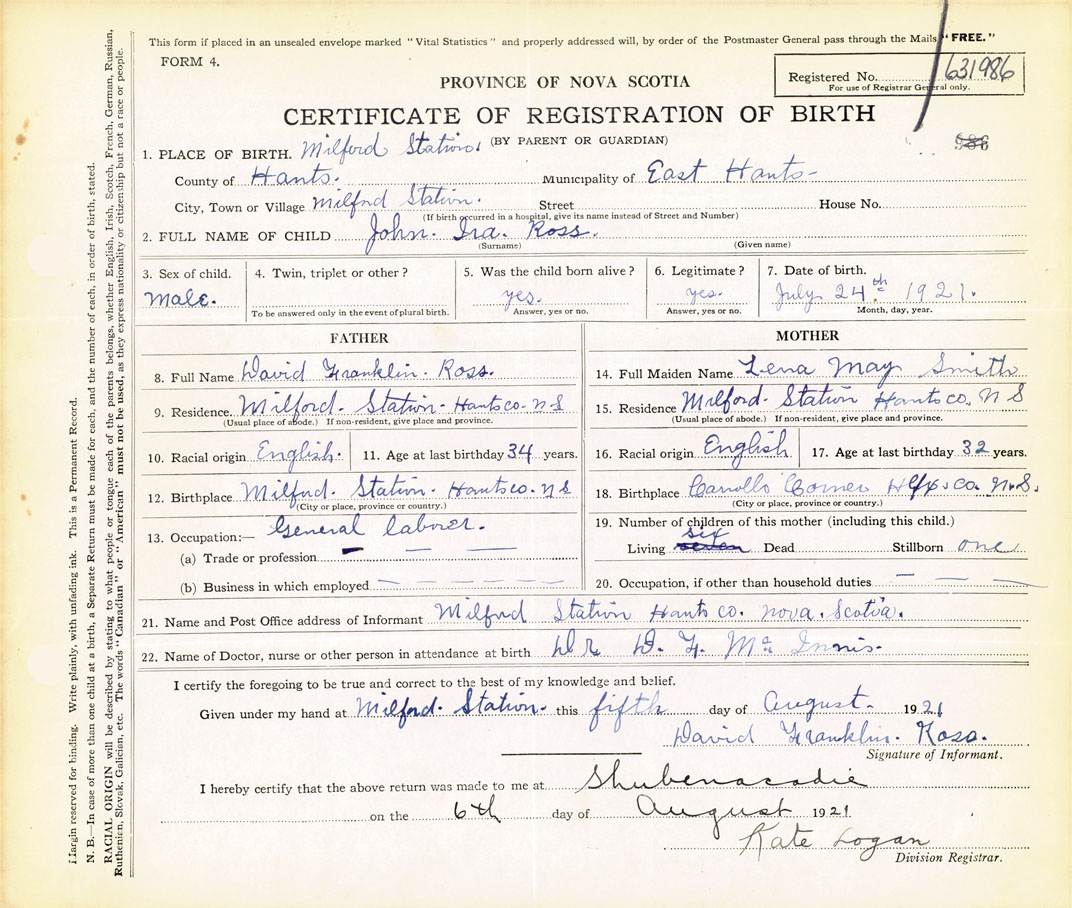 This form if placed in an unsealed envelope marked "Vital Statistics" and properly addressed will, by order of the Postmaster General pass through the Mails "FREE."
FORM 4.
Registered No. 631986
For use of Registrar General only.
PROVINCE OF NOVA SCOTIA
CERTIFICATE OF REGISTRATION OF BIRTH
(BY PARENT OR GUARDIAN)
986
1. PLACE OF BIRTH. Milford Station.
County of Hants. Municipality of East Hants-
City, Town or Village Milford Station. Street House No.
(If birth occurred in a hospital, give its name instead of Street and Number)
2. FULL NAME OF CHILD John. Ira. Ross.
(Surname) (Given name)
3. Sex of child. 4. Twin, triplet or other? 5. Was the child born alive? 6. Legitimate? 7. Date of birth.
Male. yes. yes. July 24th. 1921.
To be answered only in the event of plural birth. Answer, yes or no. Answer, yes or no. Month, day, year.
FATHER
8. Full Name David Franklin. Ross.
9. Residence. Milford. Station. Hants co. N S
(Usual place of abode.) If non-resident, give place and province.
10. Racial origin English. 11. Age at last birthday 34 years.
12. Birthplace Milford. Station. Hants co. N S
(City or place, province or country.)
13. Occupation:— General laborer.
(a) Trade or profession
(b) Business in which employed
MOTHER
14. Full Maiden Name Lena May Smith
15. Residence Milford. Station Hants co. N S
(Usual place of abode.) If non-resident, give place and province.
16. Racial origin English 17. Age at last birthday 32 years.
18. Birthplace Carrolls Corner Hfx. co. N.S.
(City or place, province or country.)
19. Number of children of this mother (including this child.)
six
Living seven Dead Stillborn one
20. Occupation, if other than household duties
21. Name and Post Office address of Informant Milford Station Hants co. Nova. Scotia.
22. Name of Doctor, nurse or other person in attendance at birth DR. D. F. Mc Innis.
I certify the foregoing to be true and correct to the best of my knowledge and belief.
Given under my hand at Milford. Station. this fifth day of August. 1921
David Franklin. Ross.
Signature of Informant.
I hereby certify that the above return was made to me at Shubenacadie
on the 6th day of August 1921
Kate Logan
Division Registrar.
Margin reserved for binding. Write plainly, with unfading ink. This is a Permanent Record.
N. B.—In case of more than one child at a birth, a Separate Return must be made for each, and the number of each, in order of birth, stated.
RACIAL ORIGIN will be described by stating to what people or tongue each of the parents belongs, whether English, Irish, Scotch, French, German, Russian,
Ruthenien, Slovak, Galician, etc. The words "Canadian" or "American" must not be used, as they express nationality or citizenship but not a race or people.